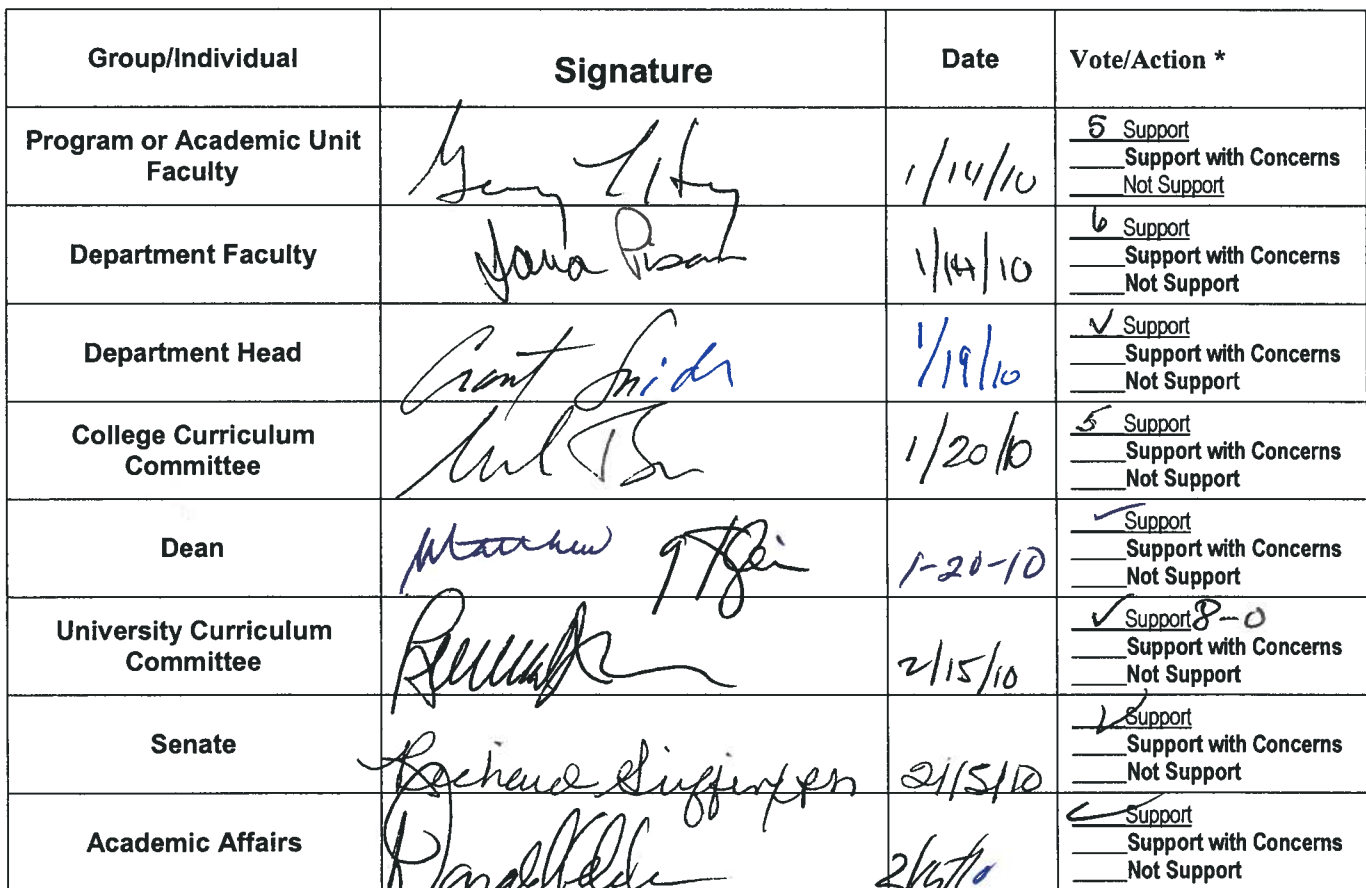 Group/Individual Signature Date Vote/Action *
Program or Academic Unit
Faculty
1/14/10
5 Support
Support with Concerns
Not Support
Department Faculty
1/14/10
6 Support
Support with Concerns
Not Support
Department Head
Grant Snider
1/19/10
✓ Support
Support with Concerns
Not Support
College Curriculum
Committee
1/20/10
5 Support
Support with Concerns
Not Support
Dean
Matthew
1-20-10
✓ Support
Support with Concerns
Not Support
University Curriculum
Committee
2/15/10
✓ Support 8-0
Support with Concerns
Not Support
Senate
2/15/10
✓ Support
Support with Concerns
Not Support
Academic Affairs
✓ Support
Support with Concerns
Not Support